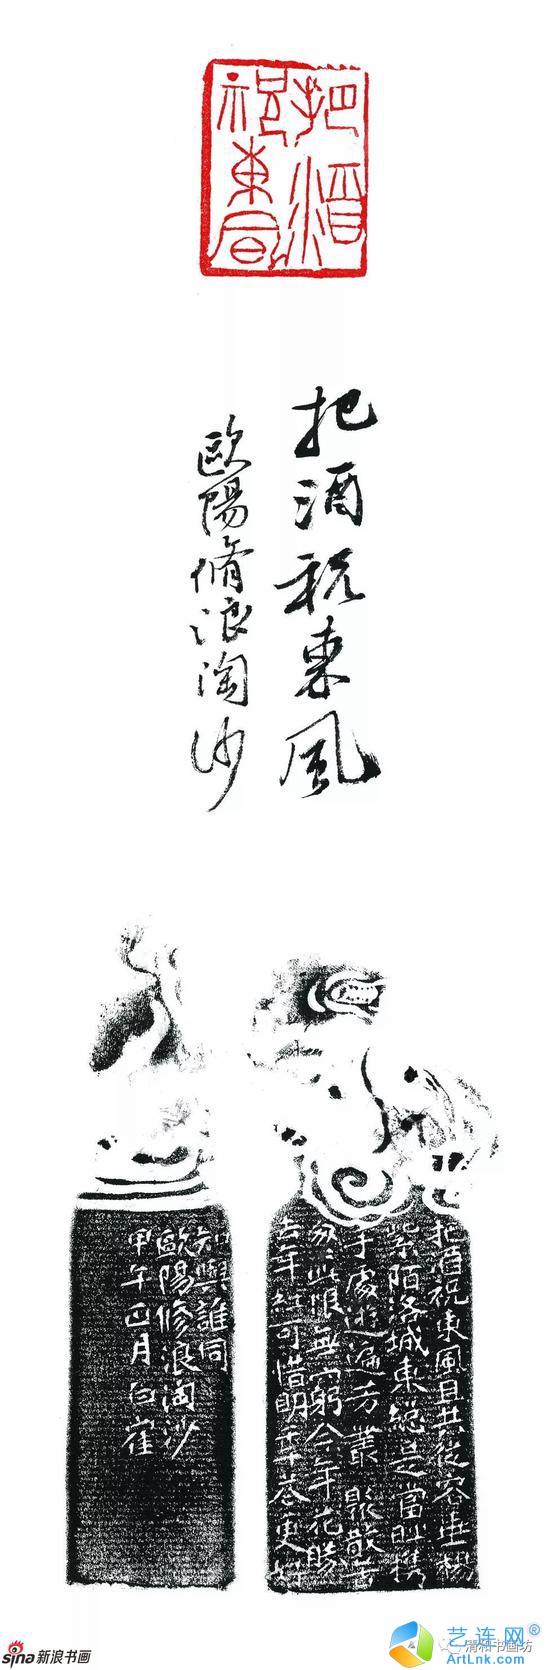 把酒
祝東風
把酒祝東風
歐陽脩浪淘沙
把酒祝東風且共從容垂楊
紫陌洛城東總是當時攜
手處遊遍芳叢聚散苦
匆匆此恨無窮今年花勝
去年紅可惜明年花更好
知與誰同
歐陽修浪淘沙
甲午正月白
sina新浪书画
清和书画坊
艺连网®
ArtLnk.com